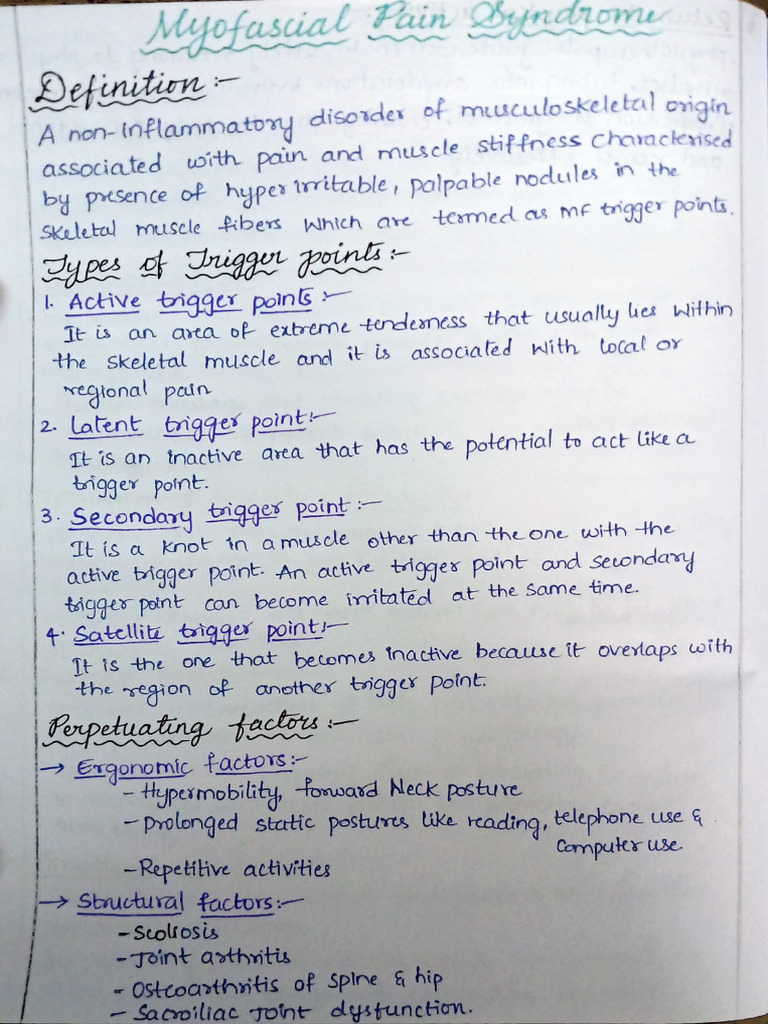 Myofascial Pain Syndrome
Definition:-
A non-inflammatory disorder of musculoskeletal origin
associated with pain and muscle stiffness characterised
by presence of hyperirritable, palpable nodules in the
skeletal muscle fibers which are termed as MF trigger points.
Types of Trigger points:-
1. Active trigger points:-
It is an area of extreme tenderness that usually lies within
the skeletal muscle and it is associated with local or
regional pain
2. Latent trigger point:-
It is an inactive area that has the potential to act like a
trigger point.
3. Secondary trigger point:-
It is a knot in a muscle other than the one with the
active trigger point. An active trigger point and secondary
trigger point can become irritated at the same time.
4. Satellite trigger point:-
It is the one that becomes inactive because it overlaps with
the region of another trigger point.
Perpetuating factors:-
→ Ergonomic factors:-
- Hypermobility, forward Neck posture
- Prolonged static postures like reading, telephone use &
computer use.
- Repetitive activities
→ Structural factors:-
- Scoliosis
- Joint arthritis
- Osteoarthritis of spine & hip
- Sacroiliac Joint dysfunction.